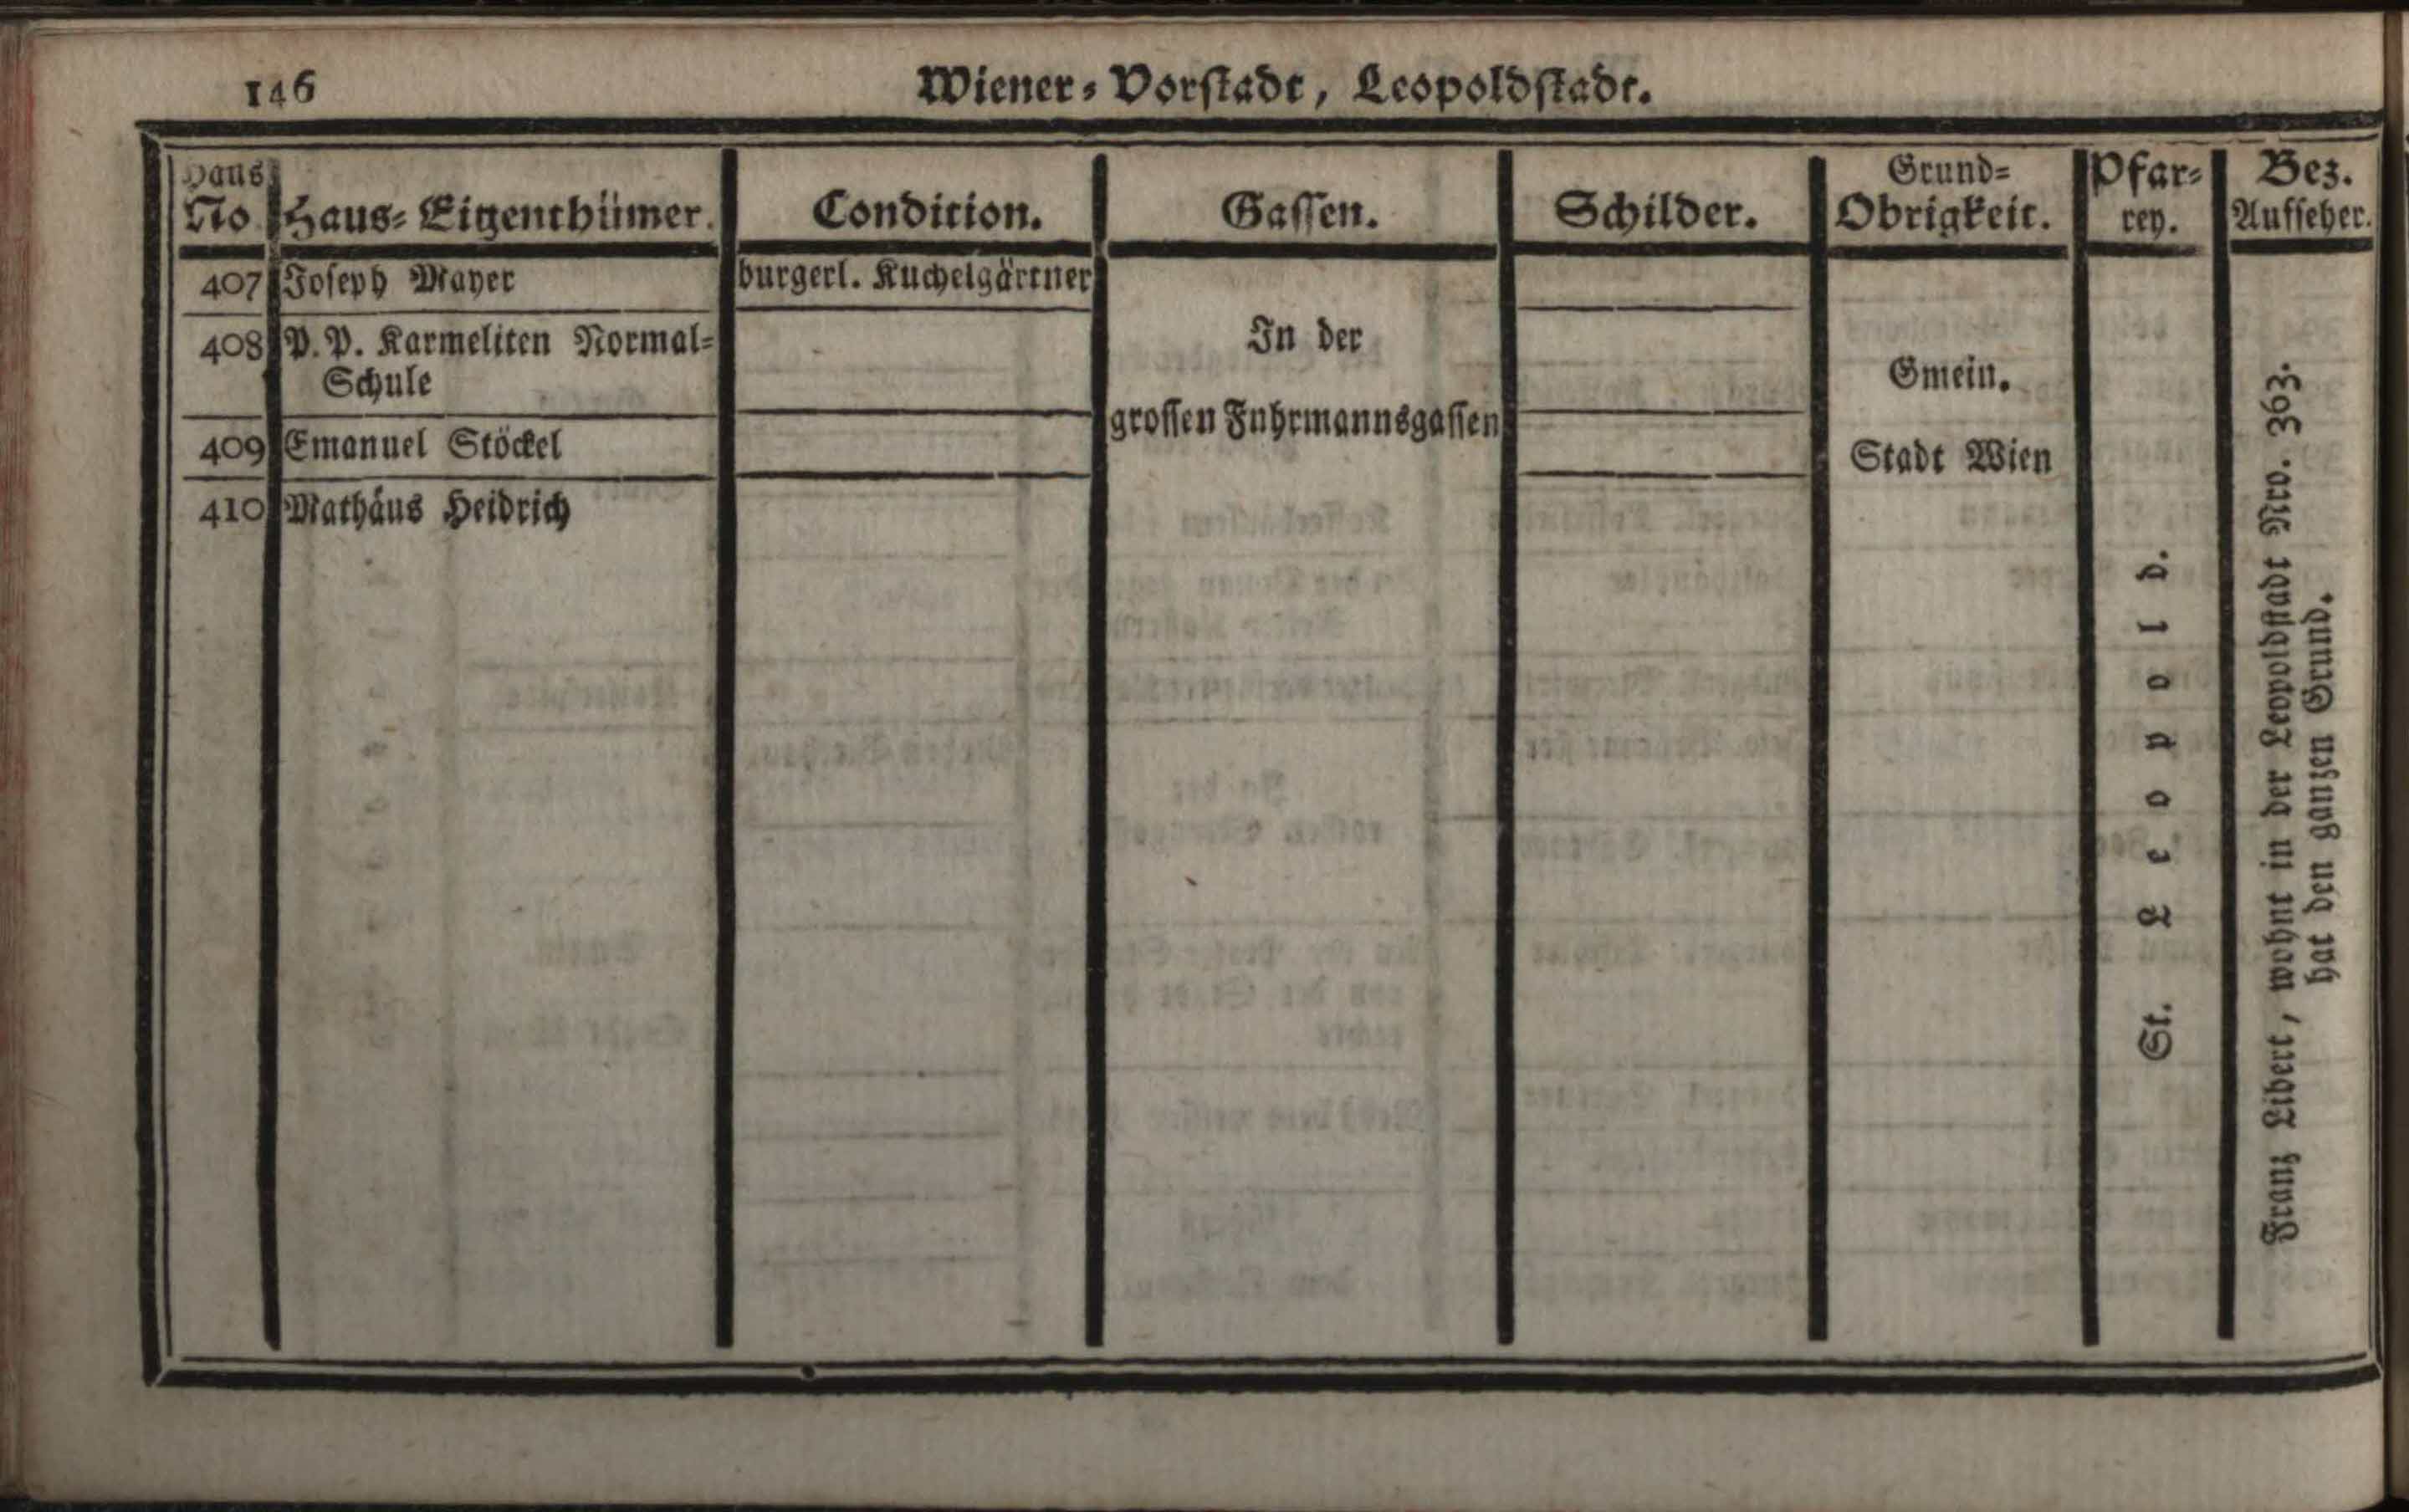 146
Wiener-Vorstadt, Leopoldstadt.
Haus
No
Haus-Eigenthümer.
Condition.
Gassen.
Schilder.
Grund-
Obrigkeit.
Pfar-
rey.
Bez.
Aufseher.
407 Joseph Mayer burgerl. Kuchelgärtner
408 P. P. Karmeliten Normal-
Schule
409 Emanuel Stöckel
410 Mathäus Heidrich
In der
grossen Fuhrmannsgassen
Gmein.
Stadt Wien
St. Leopold.
Franz Libert, wohnt in der Leopoldstadt Nro. 363.
hat den ganzen Grund.